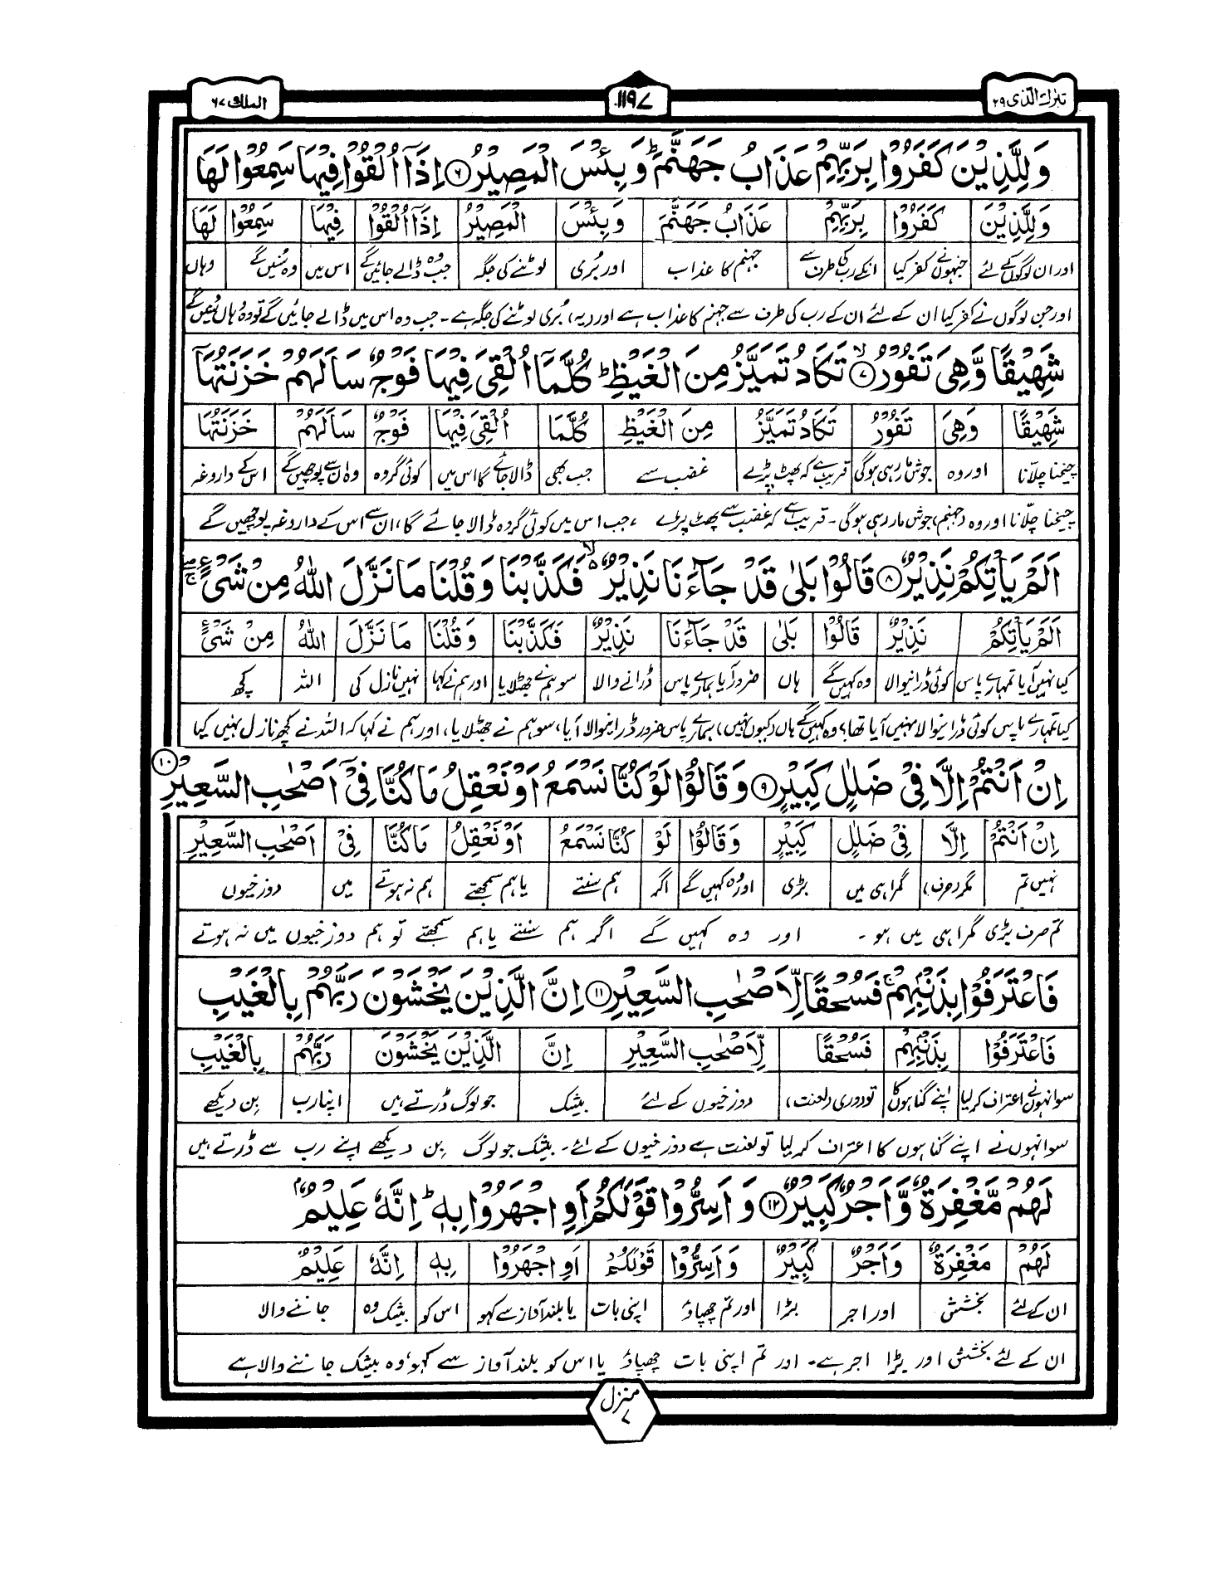 تبٰرك الذی ۲۹
۱۱۹۷
الملك ۶۷
وَلِلَّذِيْنَ كَفَرُوْا بِرَبِّهِمْ عَذَابُ جَهَنَّمَ ؕ وَ بِئْسَ الْمَصِيْرُ ۶ اِذَاۤ اُلْقُوْا فِيْهَا سَمِعُوْا لَهَا
وَلِلَّذِيْنَ كَفَرُوْا بِرَبِّهِمْ عَذَابُ جَهَنَّمَ وَ بِئْسَ الْمَصِيْرُ اِذَاۤ اُلْقُوْا فِيْهَا سَمِعُوْا لَهَا
اور ان لوگوں کے لئے جنہوں نے کفر کیا انکے رب کی طرف سے جہنم کا عذاب اور بُری لوٹنے کی جگہ جب وہ ڈالے جائیں گے اس میں وہ سُنیں گے وہاں
اور جن لوگوں نے کفر کیا ان کے لئے ان کے رب کی طرف سے جہنم کا عذاب ہے اور (یہ) بُری لوٹنے کی جگہ ہے۔ جب وہ اس میں ڈالے جائیں گے تو وہ وہاں سُنیں گے
شَهِيْقًا وَّهِیَ تَفُوْرُ ۙ۷ تَكَادُ تَمَيَّزُ مِنَ الْغَيْظِ ؕ كُلَّمَاۤ اُلْقِیَ فِيْهَا فَوْجٌ سَاَلَهُمْ خَزَنَتُهَاۤ
شَهِيْقًا وَّهِیَ تَفُوْرُ تَكَادُ تَمَيَّزُ مِنَ الْغَيْظِ كُلَّمَاۤ اُلْقِیَ فِيْهَا فَوْجٌ سَاَلَهُمْ خَزَنَتُهَاۤ
چیخنا چلّانا اور وہ جوش مار رہی ہوگی قریب ہے کہ پھٹ پڑے غضب سے جب بھی ڈالا جائے گا اس میں کوئی گروہ وہ ان سے پوچھیں گے اس کے داروغہ
چیخنا چلّانا اور وہ (جہنم) جوش مار رہی ہوگی۔ قریب ہے کہ غضب سے پھٹ پڑے، جب اس میں کوئی گروہ ڈالا جائے گا، ان سے اس کے داروغہ پوچھیں گے
اَلَمْ يَاْتِكُمْ نَذِيْرٌ ۸ قَالُوْا بَلٰی قَدْ جَآءَنَا نَذِيْرٌ ۙ۬ فَكَذَّبْنَا وَ قُلْنَا مَا نَزَّلَ اللهُ مِنْ شَیْءٍ ۚۖ
اَلَمْ يَاْتِكُمْ نَذِيْرٌ قَالُوْا بَلٰی قَدْ جَآءَنَا نَذِيْرٌ فَكَذَّبْنَا وَ قُلْنَا مَا نَزَّلَ اللهُ مِنْ شَیْءٍ
کیا نہیں آیا تمہارے پاس کوئی ڈرانیوالا وہ کہیں گے ہاں ضرور آیا ہمارے پاس ڈرانے والا سو ہم نے جھٹلایا اور ہم نے کہا نہیں نازل کی اللہ کچھ
کیا تمہارے پاس کوئی ڈرانیوالا نہیں آیا تھا؟ وہ کہیں گے ہاں (کیوں نہیں) ہمارے پاس ضرور ڈرانیوالا آیا، سو ہم نے جھٹلایا، اور ہم نے کہا کہ اللہ نے کچھ نازل نہیں کیا
اِنْ اَنْتُمْ اِلَّا فِیْ ضَلٰلٍ كَبِيْرٍ ۹ وَ قَالُوْا لَوْ كُنَّا نَسْمَعُ اَوْ نَعْقِلُ مَا كُنَّا فِیْۤ اَصْحٰبِ السَّعِيْرِ ۱۰
اِنْ اَنْتُمْ اِلَّا فِیْ ضَلٰلٍ كَبِيْرٍ وَ قَالُوْا لَوْ كُنَّا نَسْمَعُ اَوْ نَعْقِلُ مَا كُنَّا فِیْ اَصْحٰبِ السَّعِيْرِ
نہیں تم مگر (صرف) گمراہی میں بڑی اور وہ کہیں گے اگر ہم سنتے یا ہم سمجھتے ہم نہ ہوتے میں دوزخیوں
تم صرف بڑی گمراہی میں ہو۔ اور وہ کہیں گے اگر ہم سنتے یا ہم سمجھتے تو ہم دوزخیوں میں نہ ہوتے
فَاعْتَرَفُوْا بِذَنْۢبِهِمْ ۚ فَسُحْقًا لِّاَصْحٰبِ السَّعِيْرِ ۱۱ اِنَّ الَّذِيْنَ يَخْشَوْنَ رَبَّهُمْ بِالْغَيْبِ
فَاعْتَرَفُوْا بِذَنْۢبِهِمْ فَسُحْقًا لِّاَصْحٰبِ السَّعِيْرِ اِنَّ الَّذِيْنَ يَخْشَوْنَ رَبَّهُمْ بِالْغَيْبِ
سو انہوں نے اعتراف کرلیا اپنے گناہوں کا تو دوری (لعنت) دوزخیوں کے لئے بیشک جو لوگ ڈرتے ہیں اپنا رب بِن دیکھے
سو انہوں نے اپنے گناہوں کا اعتراف کر لیا تو لعنت ہے دوزخیوں کے لئے۔ بیشک جو لوگ بن دیکھے اپنے رب سے ڈرتے ہیں
لَهُمْ مَّغْفِرَةٌ وَّ اَجْرٌ كَبِيْرٌ ۱۲ وَ اَسِرُّوْا قَوْلَكُمْ اَوِ اجْهَرُوْا بِهٖ ؕ اِنَّهٗ عَلِيْمٌۢ
لَهُمْ مَّغْفِرَةٌ وَاَجْرٌ كَبِيْرٌ وَ اَسِرُّوْا قَوْلَكُمْ اَوِ اجْهَرُوْا بِهٖ اِنَّهٗ عَلِيْمٌۢ
ان کے لئے بخشش اور اجر بڑا اور تم چھپاؤ اپنی بات یا بلند آواز سے کہو اس کو بیشک وہ جاننے والا
ان کے لئے بخشش اور بڑا اجر ہے۔ اور تم اپنی بات چھپاؤ یا اس کو بلند آواز سے کہو، وہ بیشک جاننے والا ہے
منزل ۷